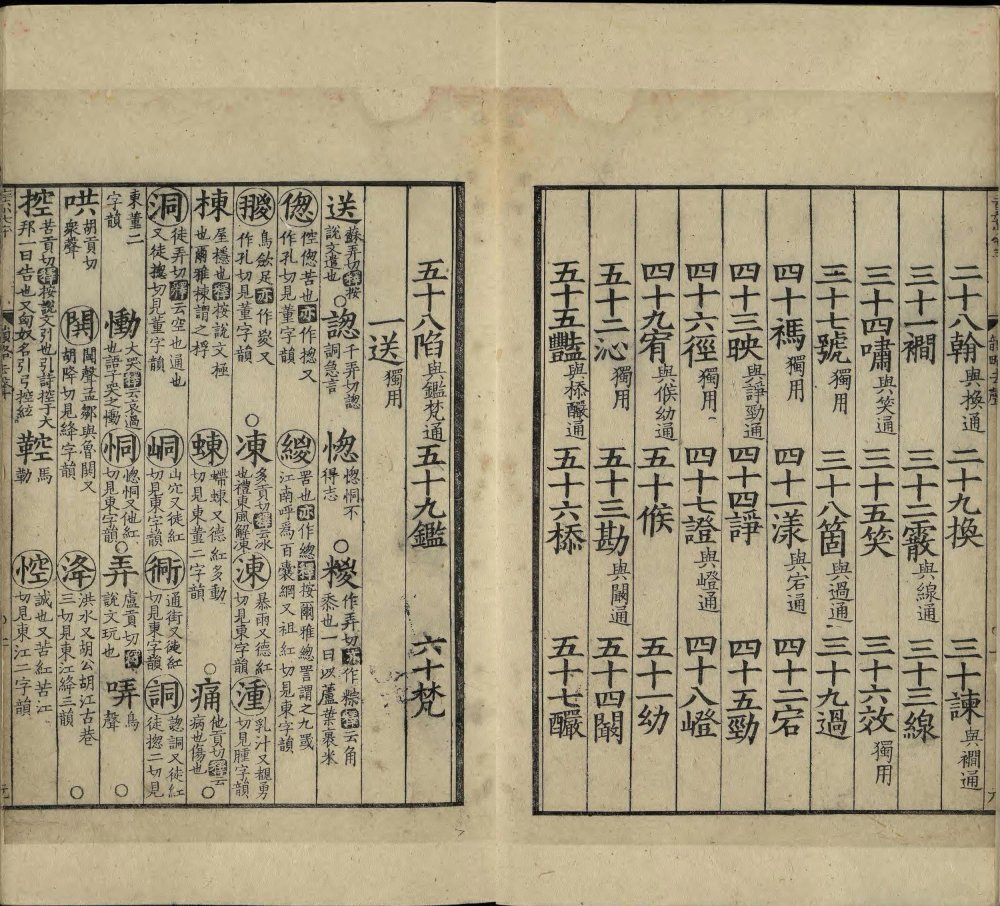 二十八翰與換通 二十九換 三十諫與襇通
三十一襇 三十二霰與線通 三十三線
三十四嘯與笑通 三十五笑 三十六效獨用
三十七號獨用 三十八箇與過通 三十九過
四十禡獨用 四十一漾與宕通 四十二宕
四十三映與諍勁通 四十四諍 四十五勁
四十六徑獨用 四十七證與嶝通 四十八嶝
四十九宥與候幼通 五十候 五十一幼
五十二沁獨用 五十三勘與闞通 五十四闞
五十五豔與㮇釅通 五十六㮇 五十七釅
五十八陷與鑑梵通 五十九鑑 六十梵
一送獨用
送蘇弄切釋按說文遣也○謥千弄切謥詷言急 愡愡恫不得志○糉作弄切亦作粽釋云角黍也一曰以蘆葉裹米
偬倥偬苦也亦作揔又作孔切見董字韻 緵罟也亦作總釋按爾雅緵罟謂之九罭江南呼為百囊網又祖紅切見東字韻
騣鳥斂足亦作㚇又作孔切見董字韻○凍多貢切釋云冰也禮東風解凍 涷暴雨又德紅切見東字韻 湩乳汁又覩勇切見腫字韻
棟屋檼也釋按說文極也爾雅棟謂之桴 蝀螮蝀又德紅多動切見東董二字韻○痛他貢切釋云病也傷也○
洞徒弄切釋云空也通也又徒揔切見董字韻 峒山穴又徒紅切見東字韻 衕通街又徒紅切見東字韻 詷謥詷又徒紅徒揔二切見
東董二字韻 慟大哭釋云哀過也語子哭之慟 恫愡恫又他紅切見東字韻○弄盧貢切釋說文玩也 哢鳥聲○
哄胡貢切衆聲 鬨鬭聲孟鄒與魯鬨又胡降切見絳字韻 洚洪水又胡公胡江古巷三切見東江絳三韻○
控苦貢切釋按說文引也引詩控于大邦一曰告也又匈奴名引弓控絃 鞚馬勒 悾誠也又苦紅苦江切見東江二字韻